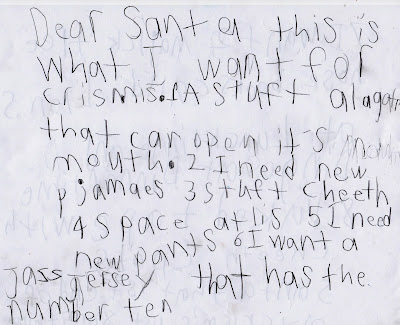 Dear Santa this is
what I want for
crismis. 1 A stuft alagatr
that can open it's
mouth. 2 I need new
pjamaes 3 stuft cheeth
4 space atlis 5 I need
new pants 6 I want a
jass jersey that has the
number ten